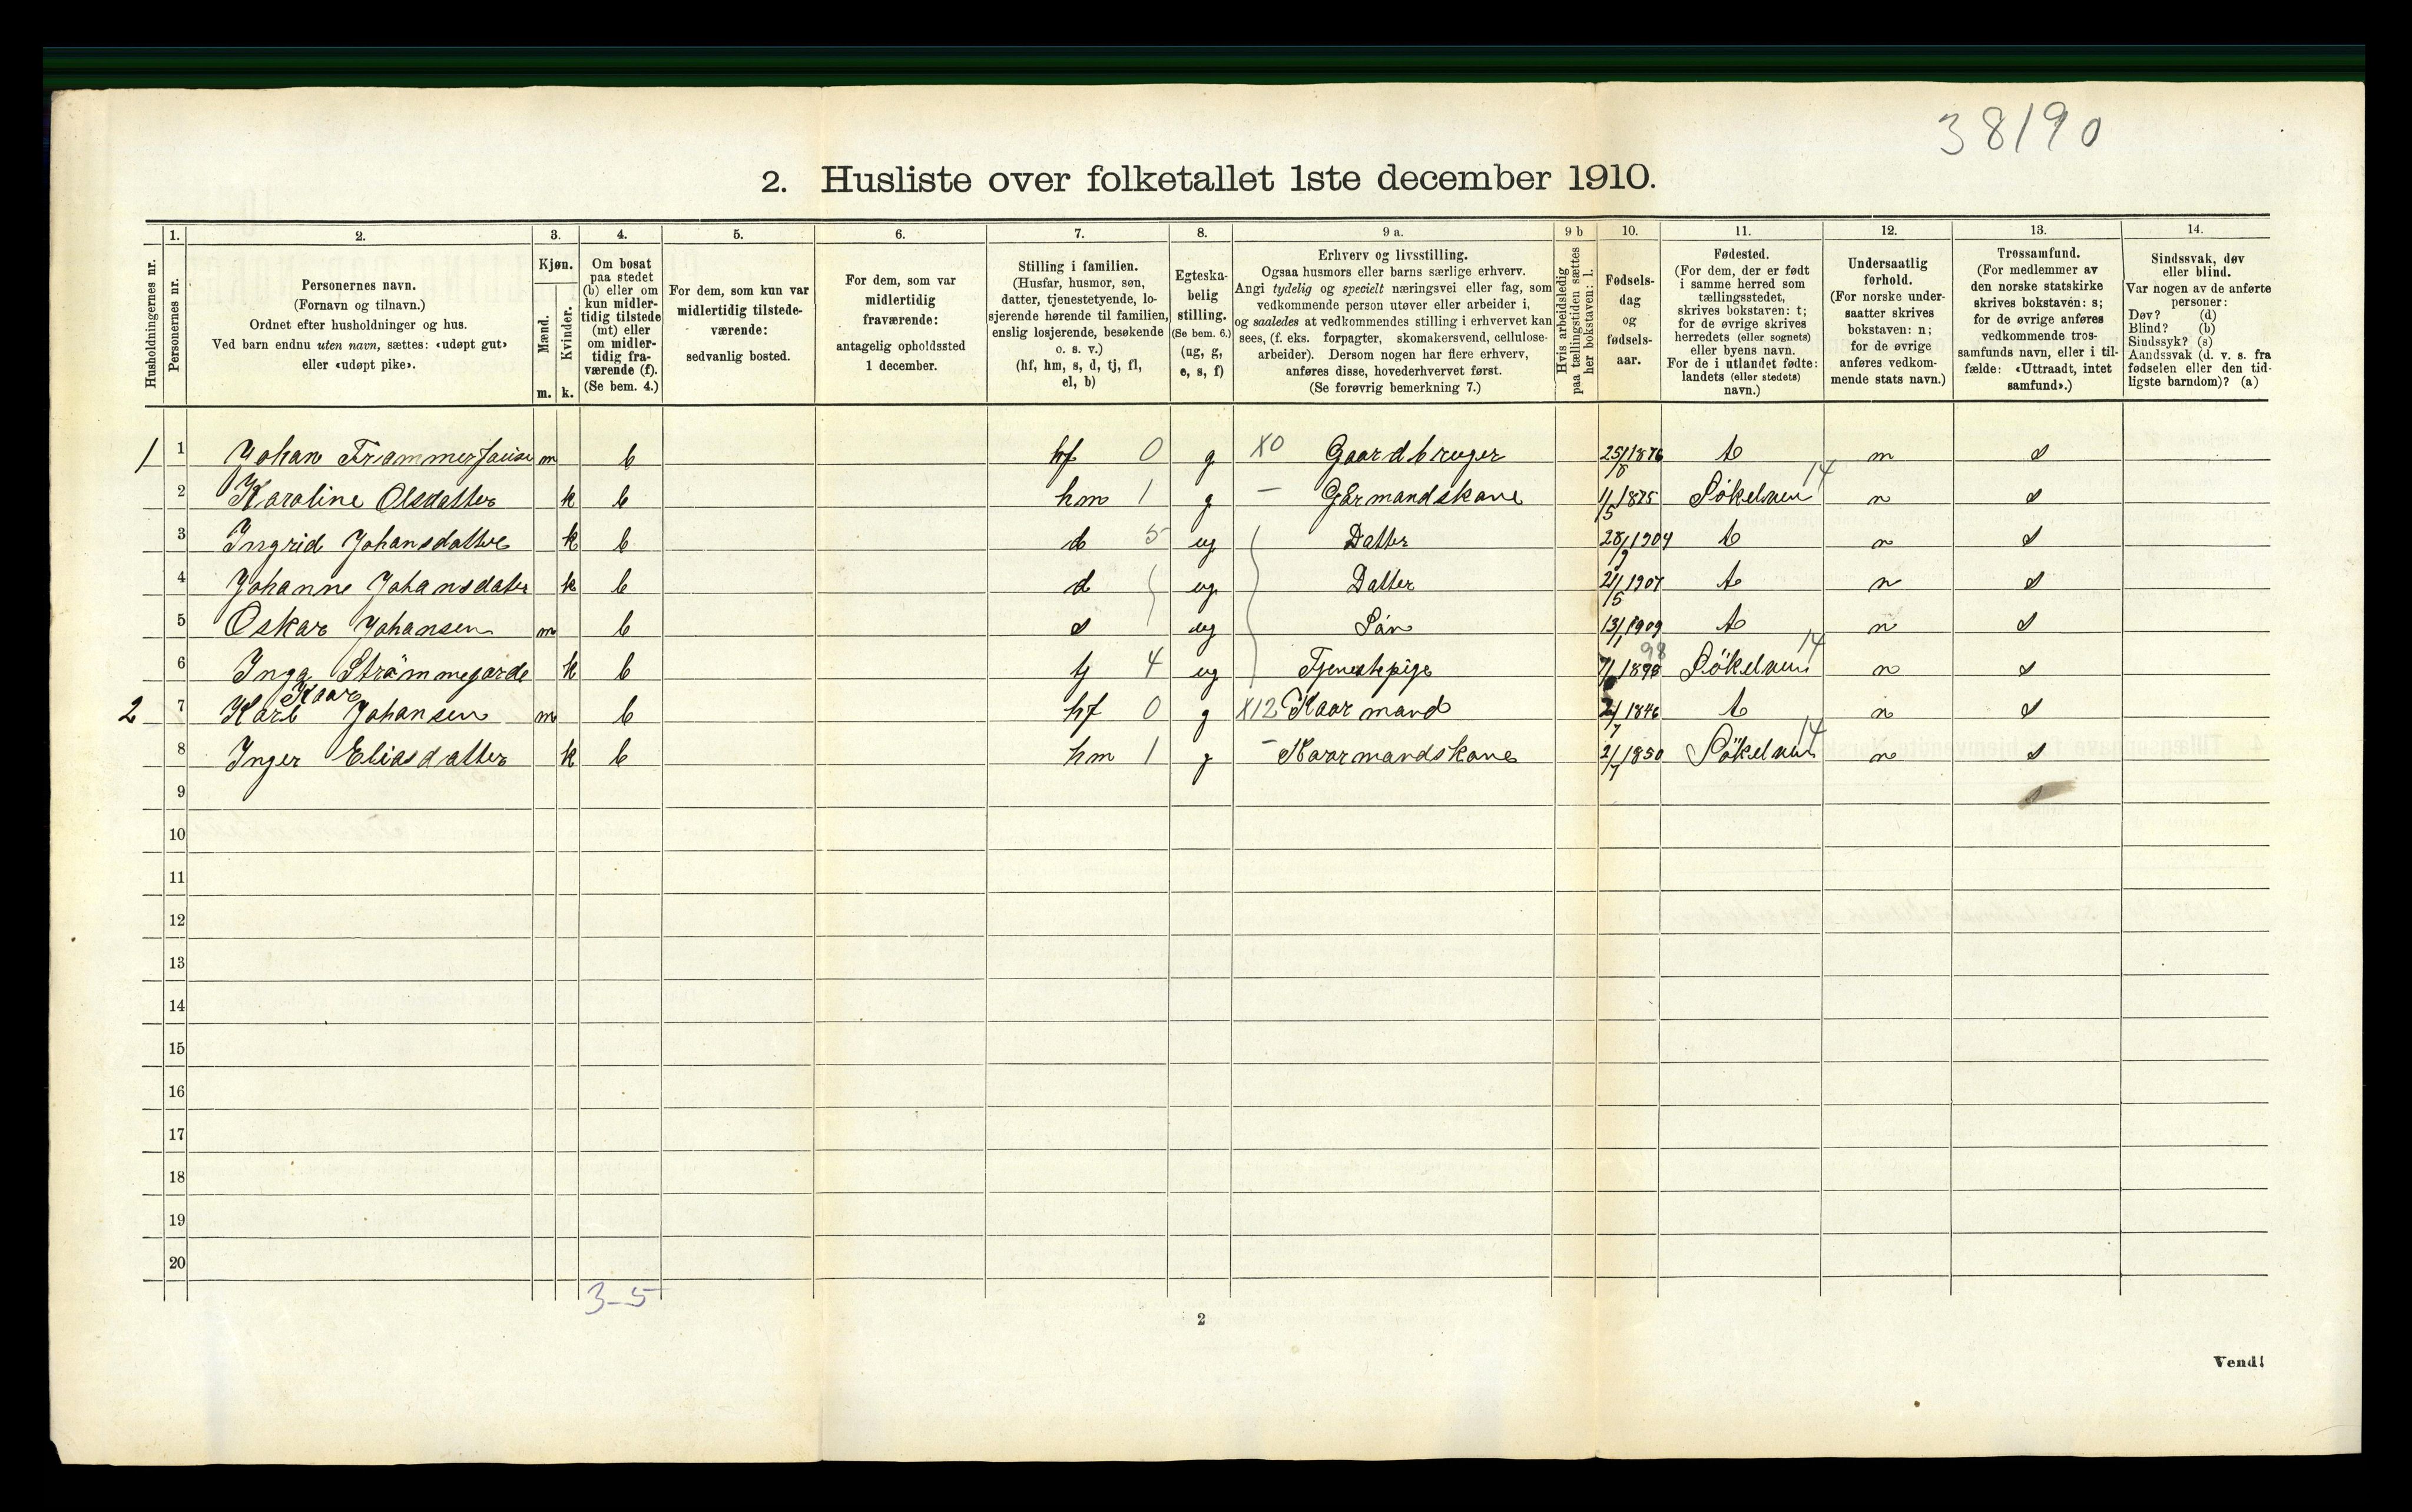 38190
2. Husliste over folketallet 1ste december 1910.
Husholdningernes nr.
1.
Personernes nr.
2.
Personernes navn.
(Fornavn og tilnavn.)
Ordnet efter husholdninger og hus.
Ved barn endnu uten navn, sættes: «udøpt gut»
eller «udøpt pike».
3.
Kjøn.
Mænd.
Kvinder.
m. k.
4.
Om bosat
paa stedet
(b) eller om
kun midler-
tidig tilstede
(mt) eller
om midler-
tidig fra-
værende (f).
(Se bem. 4.)
5.
For dem, som kun var
midlertidig tilstede-
værende:
sedvanlig bosted.
6.
For dem, som var
midlertidig
fraværende:
antagelig opholdssted
1 december.
7.
Stilling i familien.
(Husfar, husmor, søn,
datter, tjenestetyende, lo-
sjerende hørende til familien,
enslig losjerende, besøkende
o. s. v.)
(hf, hm, s, d, tj, fl,
el, b)
8.
Egteska-
belig
stilling.
(Se bem. 6.)
(ug, g,
e, s, f)
9 a.
Erhverv og livsstilling.
Ogsaa husmors eller barns særlige erhverv.
Angi tydelig og specielt næringsvei eller fag, som
vedkommende person utøver eller arbeider i,
og saaledes at vedkommendes stilling i erhvervet kan
sees, (f. eks. forpagter, skomakersvend, cellulose-
arbeider). Dersom nogen har flere erhverv,
anføres disse, hovederhvervet først.
(Se forøvrig bemerkning 7.)
9 b
Hvis arbeidsledig
paa tællingstiden sættes
her bokstaven: l.
10.
Fødsels-
dag
og
fødsels-
aar.
11.
Fødested.
(For dem, der er født
i samme herred som
tællingsstedet,
skrives bokstaven: t;
for de øvrige skrives
herredets (eller sognets)
eller byens navn.
For de i utlandet fødte:
landets (eller stedets)
navn.)
12.
Undersaatlig
forhold.
(For norske under-
saatter skrives
bokstaven: n;
for de øvrige
anføres vedkom-
mende stats navn.)
13.
Trossamfund.
(For medlemmer av
den norske statskirke
skrives bokstaven: s;
for de øvrige anføres
vedkommende tros-
samfunds navn, eller i til-
fælde: «Uttraadt, intet
samfund».)
14.
Sindssvak, døv
eller blind.
Var nogen av de anførte
personer:
Døv? (d)
Blind? (b)
Sindssyk? (s)
Aandssvak (d. v. s. fra
fødselen eller den tid-
ligste barndom)? (a)
1 1 Johan m b hf 0 g X0 Gaardbruger 25/8 1876 t s
2 Karoline Olsdatter k b hm 1 g – 11/5 1875 14 n s
3 Ingrid Johansdatter k b d 5 ug Datter 28/9 1904 t n s
4 Johanne Johansdatter k b d ug Datter 21/5 1907 t n s
5 Oskar Johansen m b s ug Sön 13/1 1909 t n s
6 Inga k b tj 4 ug Tjenestepige 98 14 n s
2 7 Karl Kaar Johansen m b hf 0 g X12 Kaarmand 2/7 1846 t n s
8 Inger Eliasdatter k b hm 1 g – Kaarmandskone 2/7 1850 14 n s
9 s
10
11
12
13
14
15
16
17
18
19
20
3–5
2
Vend!